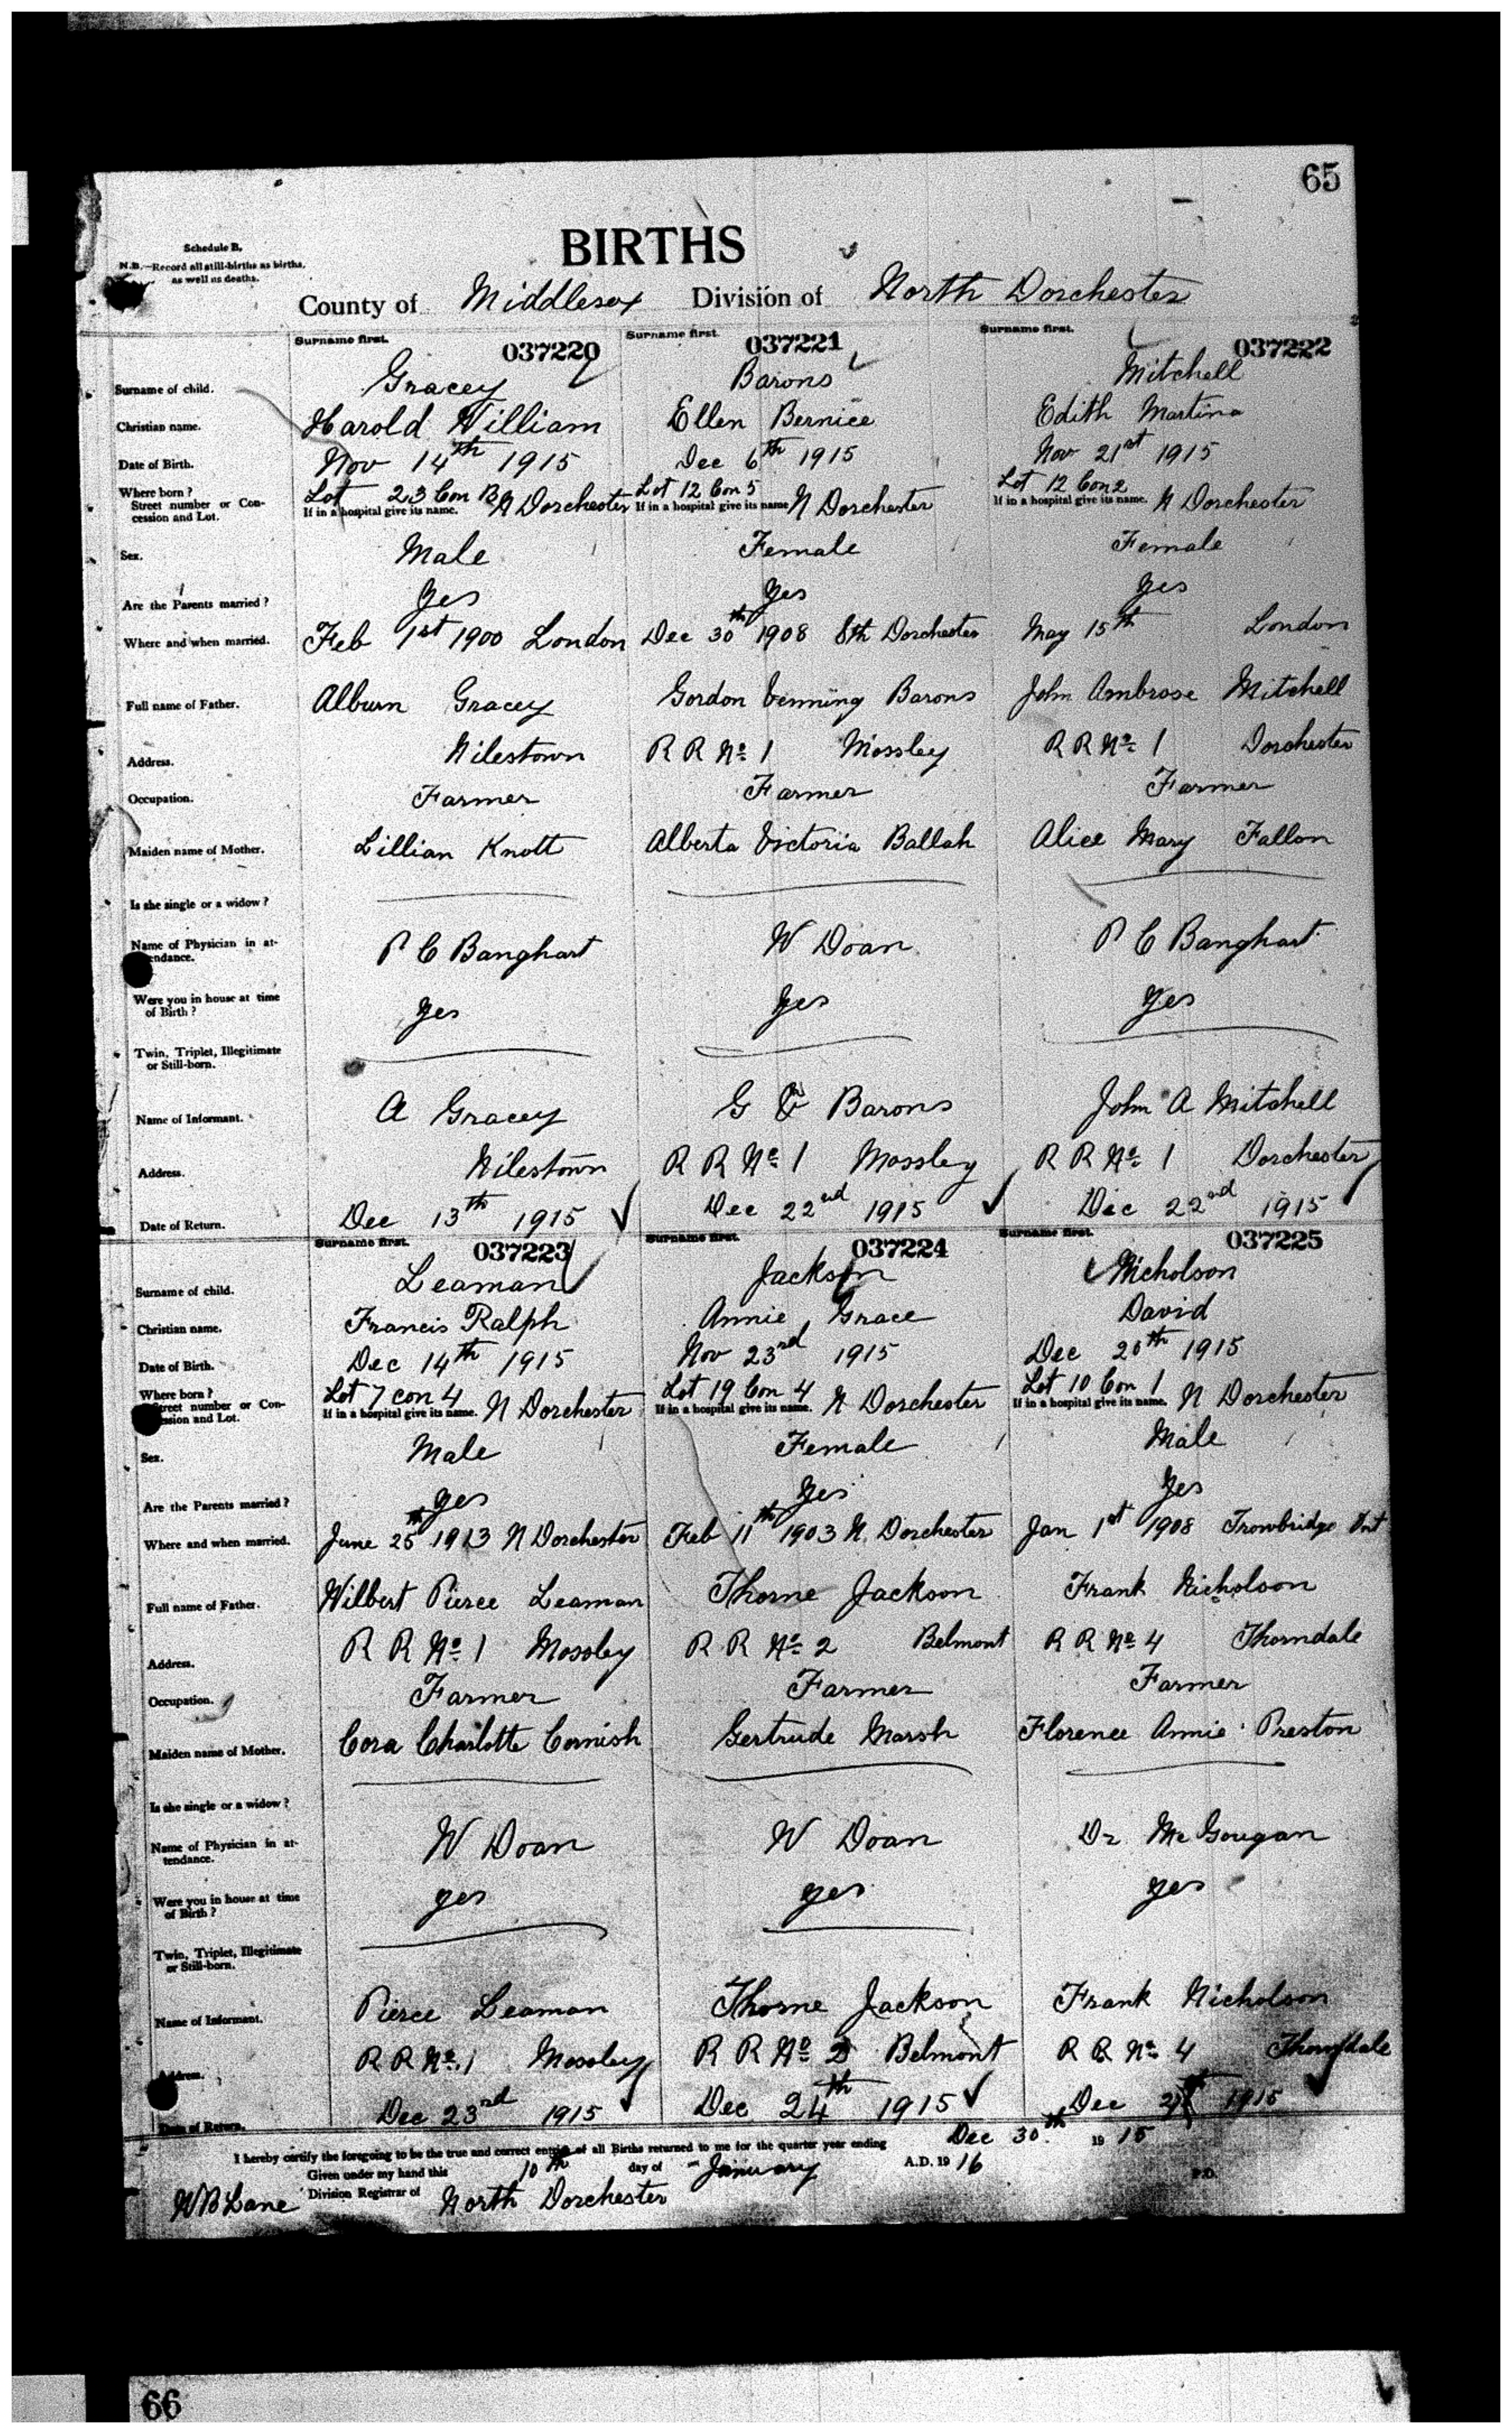 65
Schedule B.
N.B.—Record all still-births as births, as well as deaths.
BIRTHS
County of Middlesex Division of North Dorchester
Surname first. 037220 Surname first. 037221 Surname first. 037222
Surname of child. Gracey Barons Mitchell
Christian name. Harold William Ellen Bernice Edith Martina
Date of Birth. Nov 14th 1915 Dec 6th 1915 Nov 21st 1915
Where born? Street number or Concession and Lot. Lot 23 Con B N Dorchester Lot 12 Con 5 N Dorchester Lot 12 Con 2 N Dorchester
If in a hospital give its name. If in a hospital give its name If in a hospital give its name.
Sex. Male Female Female
Are the Parents married? Yes Yes Yes
Where and when married. Feb 1st 1900 London Dec 30th 1908 Sth Dorchester May 15th London
Full name of Father. Alburn Gracey Gordon Venning Barons John Ambrose Mitchell
Address. Nilestown R R No 1 Mossley R R No 1 Dorchester
Occupation. Farmer Farmer Farmer
Maiden name of Mother. Lillian Knott Alberta Victoria Ballah Alice Mary Fallon
Is she single or a widow?
Name of Physician in attendance. P C Banghart W Doan P C Banghart
Were you in house at time of Birth? Yes Yes Yes
Twin, Triplet, Illegitimate or Still-born.
Name of Informant. A Gracey G V Barons John A Mitchell
Address. Nilestown R R No 1 Mossley R R No 1 Dorchester
Date of Return. Dec 13th 1915 Dec 22nd 1915 Dec 22nd 1915
Surname first. 037223 Surname first. 037224 Surname first. 037225
Surname of child. Leaman Jackson Nicholson
Christian name. Francis Ralph Annie Grace David
Date of Birth. Dec 14th 1915 Nov 23rd 1915 Dec 20th 1915
Where born? Street number or Concession and Lot. Lot 7 con 4 N Dorchester Lot 19 Con 4 N Dorchester Lot 10 Con 1 N Dorchester
If in a hospital give its name. If in a hospital give its name. If in a hospital give its name.
Sex. Male Female Male
Are the Parents married? Yes Yes Yes
Where and when married. June 25th 1913 N Dorchester Feb 11th 1903 N. Dorchester Jan 1st 1908 Trowbridge Ont
Full name of Father. Wilbert Pierce Leaman Thorne Jackson Frank Nicholson
Address. R R No 1 Mossley R R No 2 Belmont R R No 4 Thorndale
Occupation. Farmer Farmer Farmer
Maiden name of Mother. Cora Charlotte Cornish Gertrude Marsh Florence Annie Preston
Is she single or a widow?
Name of Physician in attendance. W Doan W Doan Dr McGougan
Were you in house at time of Birth? yes yes yes
Twin, Triplet, Illegitimate or Still-born.
Name of Informant. Pierce Leaman Thorne Jackson Frank Nicholson
Address. R R No. 1 Mossley R R No 2 Belmont R R No 4 Thorndale
Date of Return. Dec 23rd 1915 Dec 24th 1915 Dec 1915
I hereby certify the foregoing to be the true and correct entries of all Births returned to me for the quarter year ending Dec 30th 1915
Given under my hand this 10th day of January A.D. 1916
W B Lane Division Registrar of North Dorchester P.O.
66